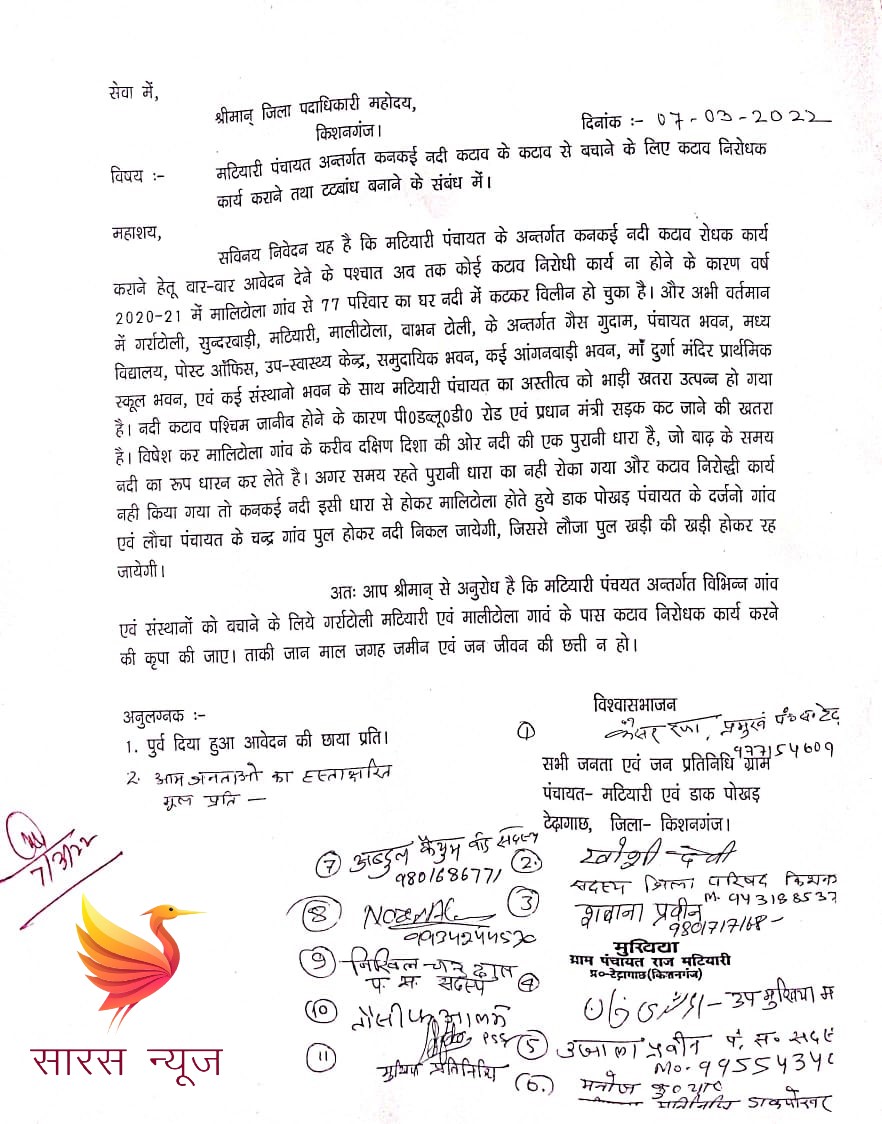 सेवा में,
श्रीमान् जिला पदाधिकारी महोदय,
किशनगंज।
दिनांक :- 07-03-2022
विषय :- मटियारी पंचायत अन्तर्गत कनकई नदी कटाव के कटाव से बचाने के लिए कटाव निरोधक
कार्य कराने तथा टटबांध बनाने के संबंध में।
महाशय,
सविनय निवेदन यह है कि मटियारी पंचायत के अन्तर्गत कनकई नदी कटाव रोधक कार्य
कराने हेतू वार-वार आवेदन देने के पश्चात अब तक कोई कटाव निरोधी कार्य ना होने के कारण वर्ष
2020-21 में मालिटोला गांव से 77 परिवार का घर नदी में कटकर विलीन हो चुका है। और अभी वर्तमान
में गर्राटोली, सुन्दरबाड़ी, मटियारी, मालीटोला, वाभन टोली, के अन्तर्गत गैस गुदाम, पंचायत भवन, मध्य
विद्यालय, पोस्ट ऑफिस, उप-स्वास्थ्य केन्द्र, समुदायिक भवन, कई आंगनबाड़ी भवन, माँ दुर्गा मंदिर प्रार्थमिक
स्कूल भवन, एवं कई संस्थानो भवन के साथ मटियारी पंचायत का अस्तीत्व को भाड़ी खतरा उत्पन्न हो गया
है। नदी कटाव पश्चिम जानीब होने के कारण पी0डब्लू0डी0 रोड एवं प्रधान मंत्री सड़क कट जाने की खतरा
है। विषेश कर मालिटोला गांव के करीव दक्षिण दिशा की ओर नदी की एक पुरानी धारा है, जो बाढ़ के समय
नदी का रूप धारन कर लेते है। अगर समय रहते पुरानी धारा का नही रोका गया और कटाव निरोद्धी कार्य
नही किया गया तो कनकई नदी इसी धारा से होकर मालिटोला होते हुये डाक पोखड़ पंचायत के दर्जनो गांव
एवं लौचा पंचायत के चन्द्र गांव पुल होकर नदी निकल जायेगी, जिससे लौजा पुल खड़ी की खड़ी होकर रह
जायेगी।
अतः आप श्रीमान् से अनुरोध है कि मटियारी पंचयत अन्तर्गत विभिन्न गांव
एवं संस्थानों को बचाने के लिये गर्राटोली मटियारी एवं मालीटोला गावं के पास कटाव निरोधक कार्य करने
की कृपा की जाए। ताकी जान माल जगह जमीन एवं जन जीवन की छत्ती न हो।
अनुलग्नक :-
1. पुर्व दिया हुआ आवेदन की छाया प्रति।
2. आम जनताओ का हस्ताक्षरित
मूल प्रति -
विश्वासभाजन
① कैसर रजा, प्रमुख
सभी जनता एवं जन प्रतिनिधि ग्राम
पंचायत- मटियारी एवं डाक पोखड़
टेढ़ागाछ, जिला- किशनगंज।
7/3/22
⑦ अब्दुल कैयुम वार्ड सदस्य
9801686771
② देवी
सदस्य जिला परिषद किशन
⑧
9934244520
③ शबाना प्रवीन
मुखिया
ग्राम पंचायत राज मटियारी
प्र०-टेढ़ागाछ(किशनगंज)
⑨ निखिल
पं. स. सदस्य
④ उप मुखिया म
⑩ तौसीफ आलम
⑤ उजाला प्रवीन पं. स. सदस्
⑪ मुखिया प्रतिनिधि
⑥ मनोज कु०
डाकपोखर
सारस न्यूज